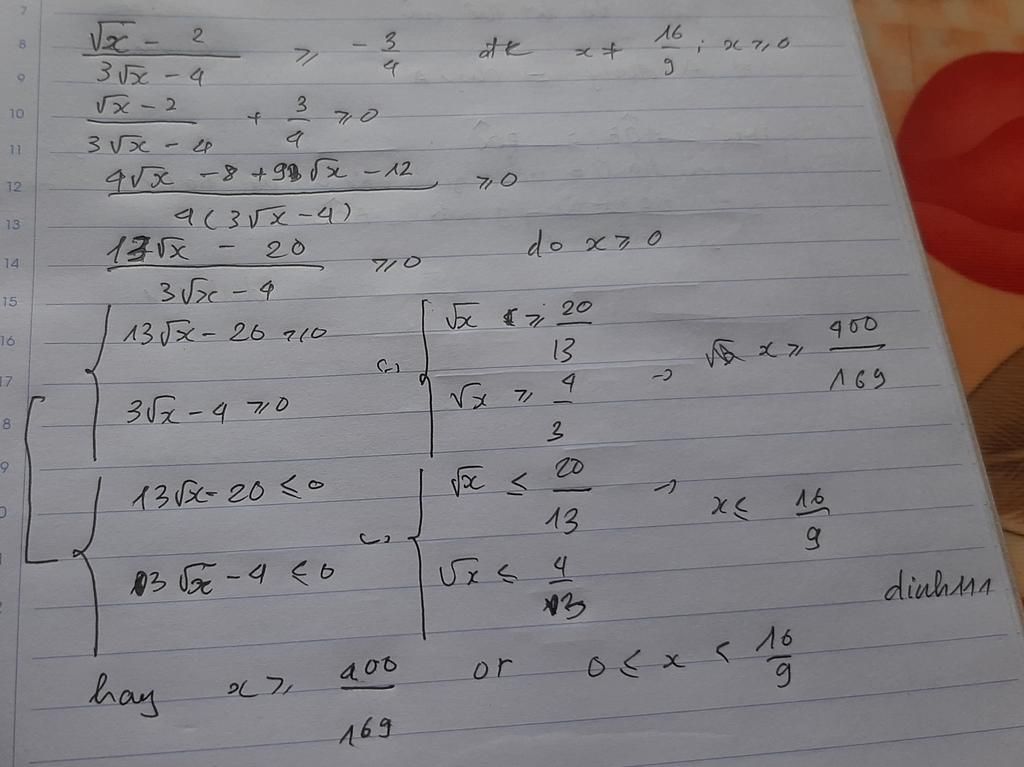 (√x - 2)/(3√x - 4) ⩾ -3/4 đk x ≠ 16/9 ; x ⩾ 0
(√x - 2)/(3√x - 4) + 3/4 ⩾ 0
(4√x - 8 + 9√x - 12)/(4(3√x - 4)) ⩾ 0
(13√x - 20)/(3√x - 4) ⩾ 0 do x ⩾ 0
13√x - 20 ⩾ 0 (-) √x ⩾ 20/13
3√x - 4 ⩾ 0 √x ⩾ 4/3 → x ⩾ 400/169
13√x - 20 ≤ 0 (-) √x ≤ 20/13 → x ≤ 16/9
3√x - 4 ≤ 0 √x ≤ 4/3
dinh111
hay x ⩾ 400/169 or 0 ≤ x < 16/9